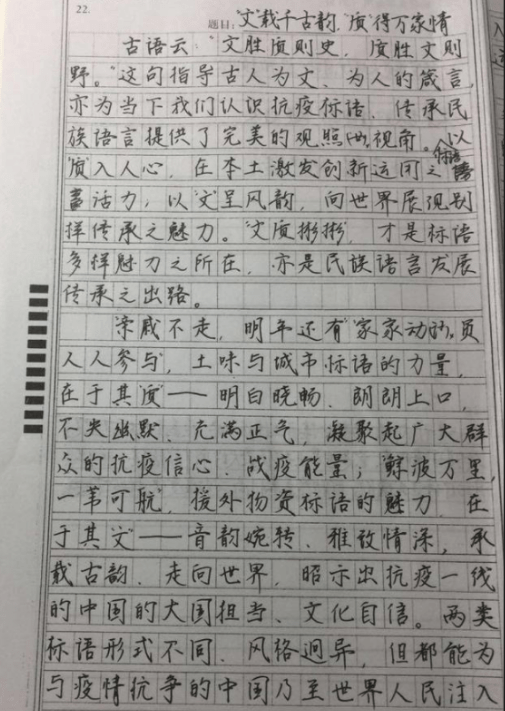 22.
题目："文"载千古韵，"质"得万家情
古语云："文胜质则史，质胜文则
野。"这句指导古人为文、为人的箴言，
亦为当下我们认识抗疫标语、传承民
族语言提供了完美的观照的视角。以
"质"入人心，在本土激发创新运用之标语
活力，以"文"呈风韵，向世界展现别
样传承之魅力。"文质彬彬"，才是标语
多样魅力之所在，亦是民族语言发展
传承之出路。
"亲戚不走，明年还有""家家动员，
人人参与"，土味与城市标语的力量，
在于其"质"——明白晓畅、朗朗上口，
不失幽默、充满正气，凝聚起广大群
众的抗疫信心、战疫能量；"鲸波万里，
一苇可航"，援外物资标语的魅力，在
于其"文"——音韵婉转、雅致情深，承
载古韵、走向世界，昭示出抗疫一线
的中国的大国担当、文化自信。两类
标语形式不同、风格迥异，但都能为
与疫情抗争的中国乃至世界人民注入